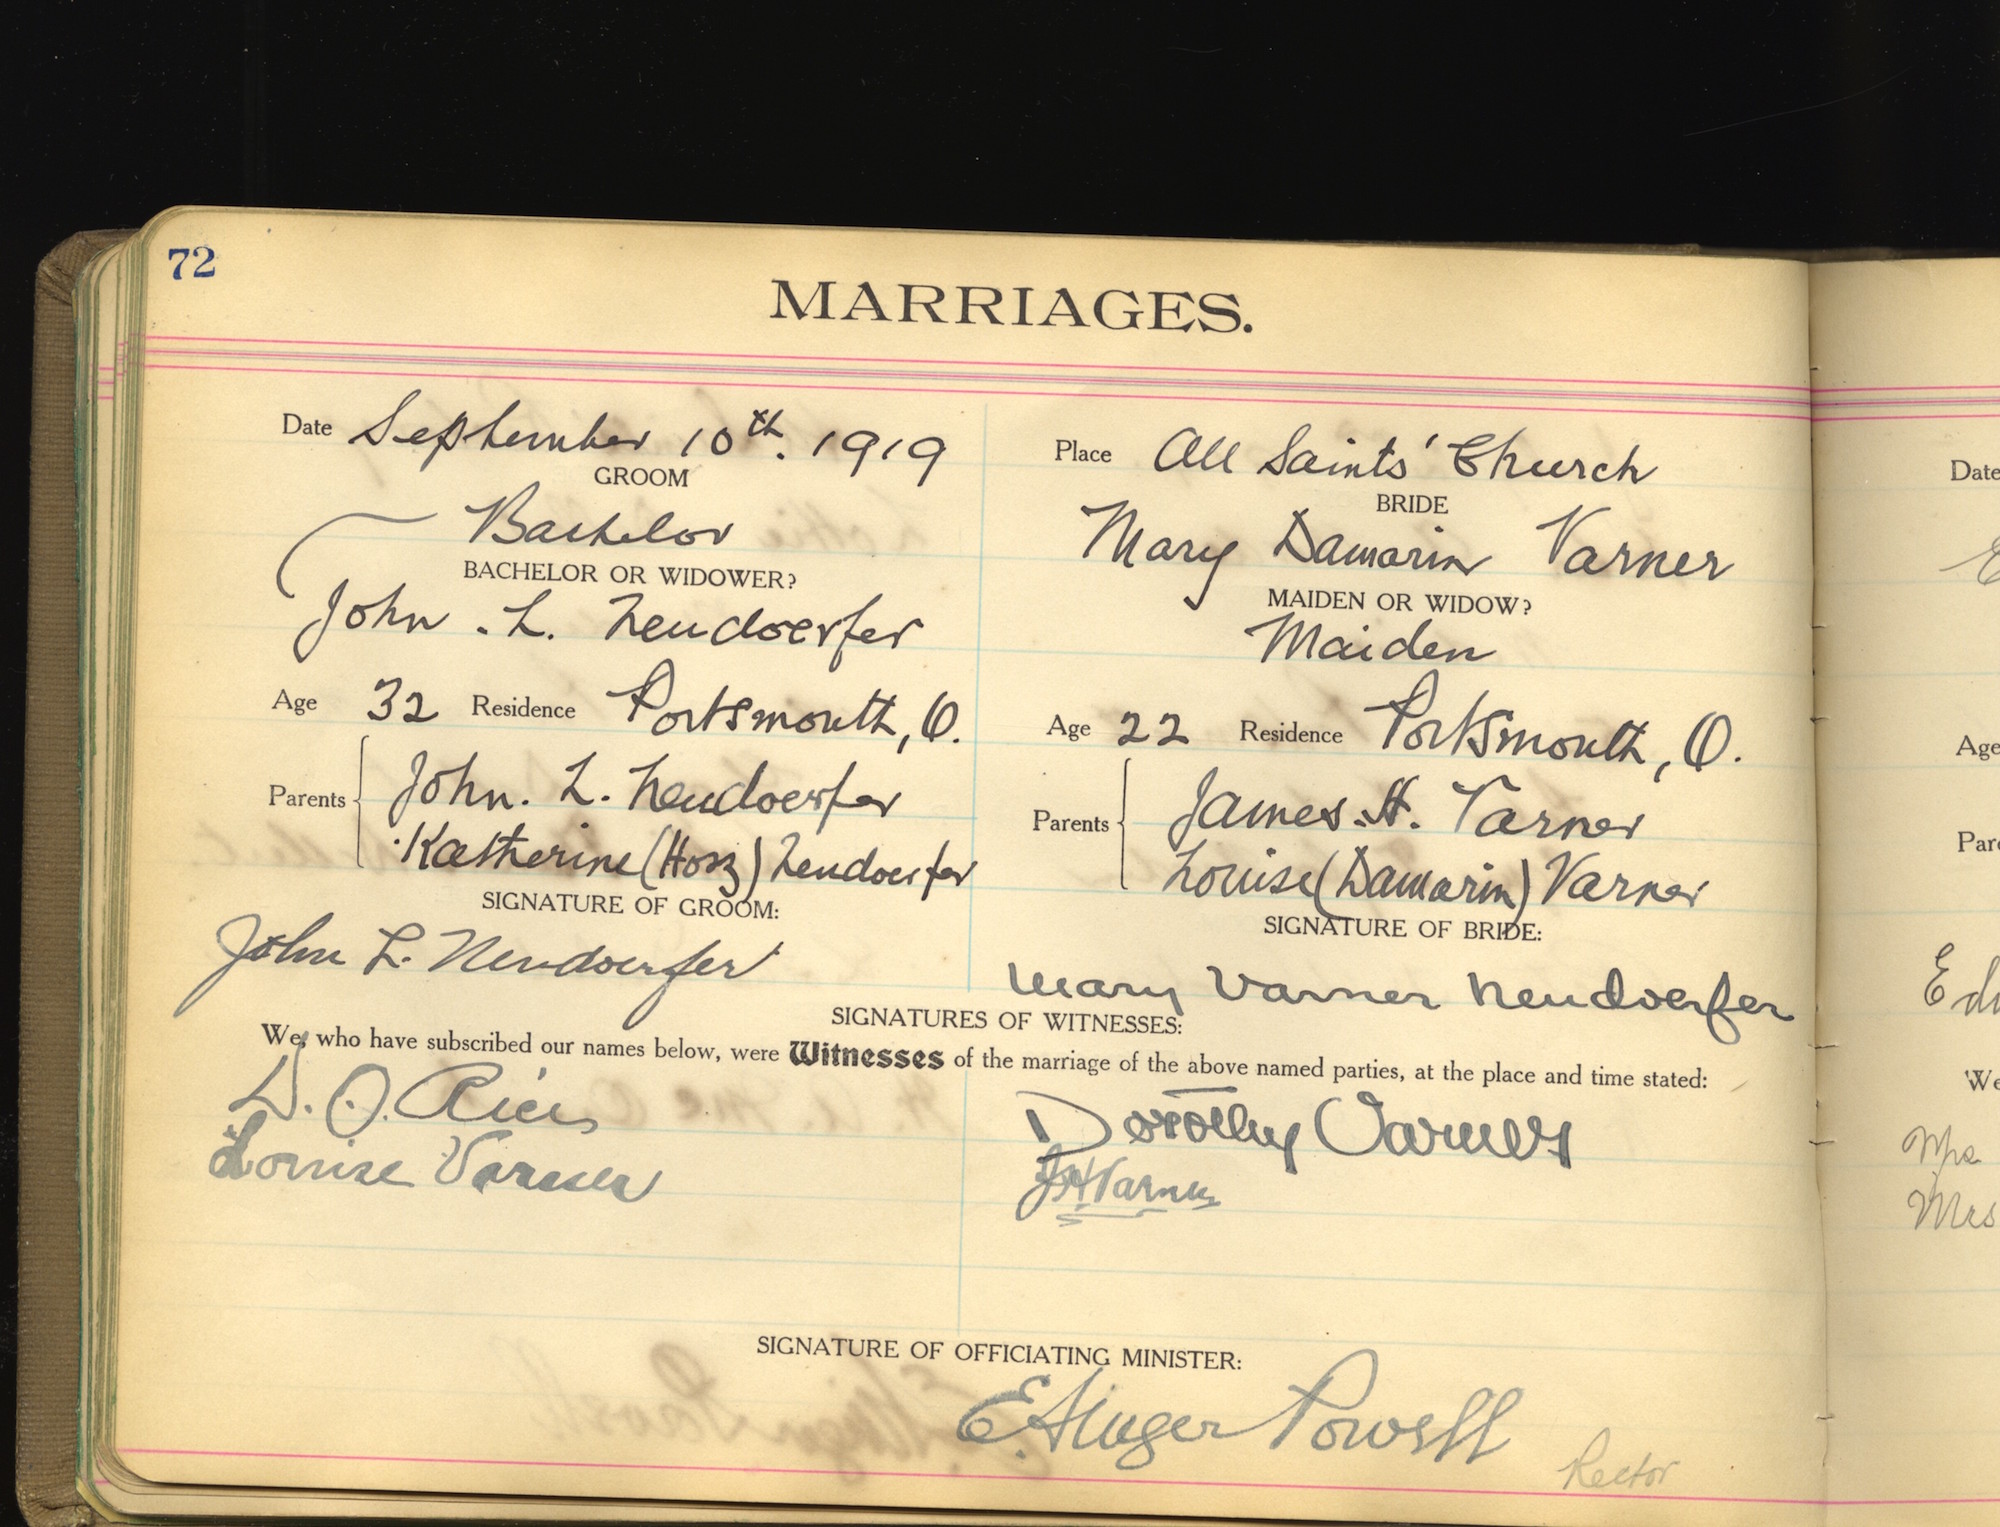 72
MARRIAGES.
Date September 10th. 1919
GROOM
Bachelor
BACHELOR OR WIDOWER?
John . L. Neudoerfer
Age 32 Residence Portsmouth, O.
Parents John. L. Neudoerfer
Katherine (Horz) Neudoerfer
SIGNATURE OF GROOM:
John L. Neudoerfer
Place All Saints' Church
BRIDE
Mary Damarin Varner
MAIDEN OR WIDOW?
Maiden
Age 22 Residence Portsmouth, O.
Parents James. H. Varner
Louise (Damarin) Varner
SIGNATURE OF BRIDE:
Mary Varner Neudoerfer
SIGNATURES OF WITNESSES:
We, who have subscribed our names below, were Witnesses of the marriage of the above named parties, at the place and time stated:
Louise Varner
Dorothy Varner
J H Varner
SIGNATURE OF OFFICIATING MINISTER:
E. Ainger Powell
Rector
Date
Age
Edu
We
Mrs